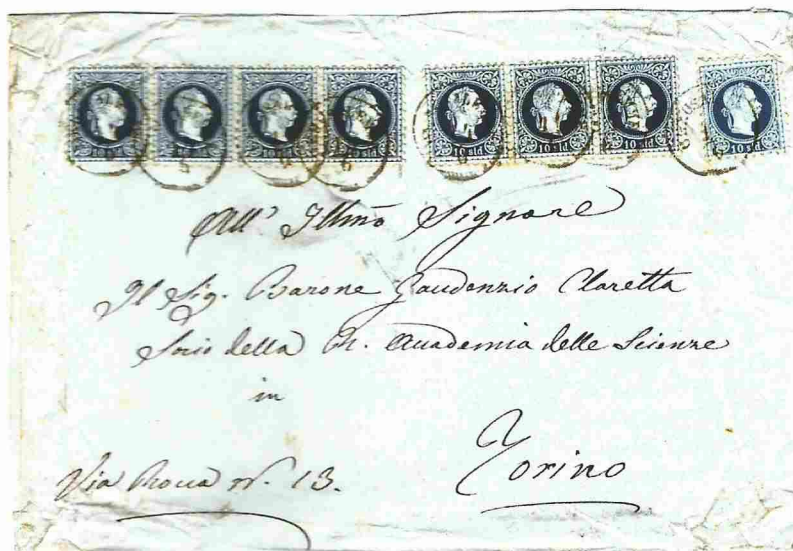 10 sld 10 sld 10 sld 10 sld 10 sld 10 sld 10 sld 10 sld
All' Illmo Signore
Il Sig. Barone Gaudenzio Claretta
Socio della R. Accademia delle Scienze
in
Torino
Via Rocca No. 13.